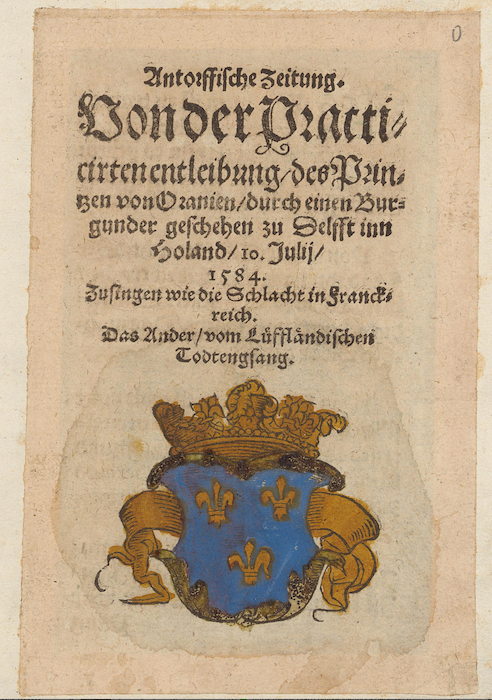 0
Antorffische Zeitung.
Von der Practi-
cirten entleibung/des Prin-
tzen von Oranien/durch einen Bur-
gunder geschehen zu Delfft inn
Holand/ 10. Julij/
1584.
Zusingen wie die Schlacht in Franck-
reich.
Das Ander/vom Lüffländischen
Todtengsang.